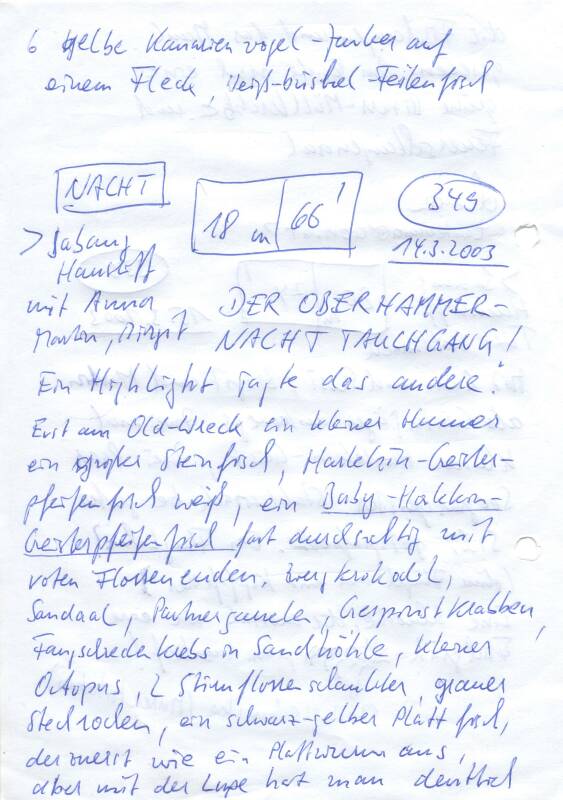 6 gelbe Kanarienvogel-Junker auf
einem Fleck, Weiß-büschel-Feilenfisch
NACHT
18 m 66'
349
14.3.2003
> Sabang
Hausriff
mit Anna
Martin, Birgit
DER OBERHAMMER-
NACHT TAUCHGANG!
Ein Highlight jagte das andere!
Erst am Old-Wreck ein kleiner Hummer
ein großer Steinfisch, Harlekin-Geister-
pfeifenfisch weiß, ein Baby-Harlekin-
Geisterpfeifenfisch fast durchsichtig mit
roten Flossenenden, Zwergkrokodil,
Sandaal, Partnergarnelen, Gespinstkrabben,
Fangschreckenkrebs in Sandhöhle, kleiner
Octopus, 2 Stirnflossenschaukler, grauer
Stechrochen, ein schwarz-gelber Plattfisch,
der zuerst wie ein Plattwurm aus,
aber mit der Lupe hat man deutlich